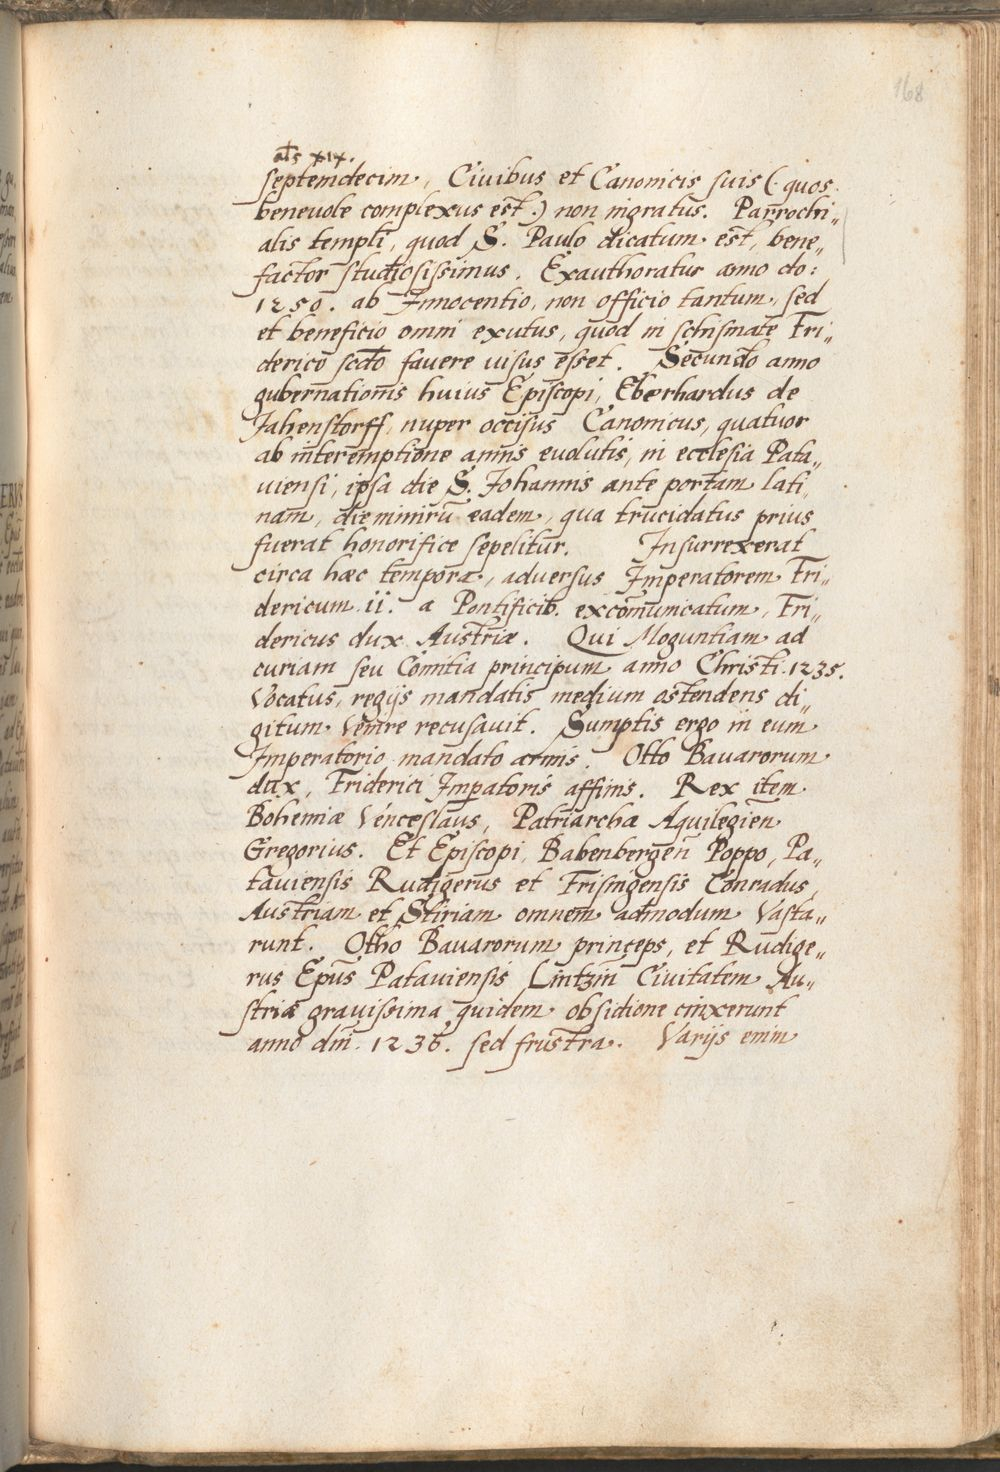 168
als xix.
septemdecim, Ciuibus et Canonicis suis (quos
beneuole complexus est.) non ingratus. Parrochi„
alis templi, quod S. Paulo dicatum est, bene„
factor studiosissimus. Exauthoratur anno do:
1250. ab Innocentio, non officio tantum, sed
et beneficio omni exutus, quod in schismate Fri„
derico scdo fauere uisus esset. Secundo anno
gubernationis huius Episcopi, Eberhardus de
Jahenstorff, nuper occisus Canonicus, quatuor
ab interemptione annis euolutis, in ecclesia Pata„
uiensi, ipsa die S. Johannis ante portam lati„
nam, die nimirū eadem, qua trucidatus prius
fuerat honorifice sepelitur. Insurrexerat
circa hæc tempora, aduersus Imperatorem Fri„
dericum ii. a Pontificib. excōmunicatum, Fri„
dericus dux Austriæ. Qui Moguntiam ad
curiam seu Comitia principum anno Christi 1235.
Vocatus, regijs mandatis medium ostendens di„
gitum Venire recusauit. Sumptis ergo in eum
Imperatorio mandato armis. Otto Bauarorum
dux, Friderici Impatoris affinis. Rex item
Bohemiæ Venceslaus, Patriarcha Aquilegien̄
Gregorius. Et Episcopi, Babenbergen̄ Poppo, Pa„
tauiensis Rudigerus et Frisingensis Conradus,
Austriam et Stiriam omnem admodum Vasta„
runt. Otho Bauarorum princeps, et Rudige„
rus Epūs Patauiensis Lintzin̄ Ciuitatem Au„
striæ grauissima quidem obsidione cinxerunt
anno dm̄. 1236. sed frustra. Varijs enim